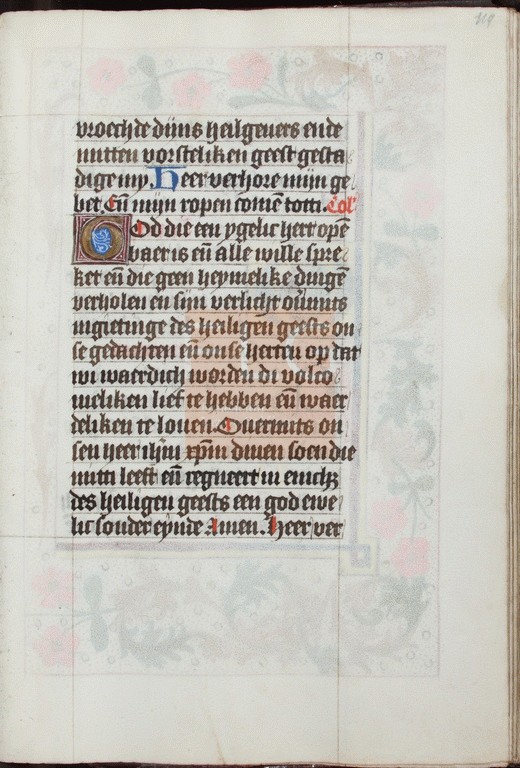 119
vroechde dijns heilgeuers ende
mitten vorsteliken geest gesta
dige my. Heer verhore mijn ge
bet. Eñ mijn ropen comē totti. Col'
God die een ygelic hert opē
baer is eñ alle wille spre
ket eñ die geen heymelike dingē
verholen en sijn verlicht oumits
ingietinge des heiligen geests on
se gedachten eñ onse herten op dat
wi waerdich worden di volco
meliken lief te hebben eñ waer
deliken te louen. Ouermits on
sen heer ihm̄ xpm̄ dinen soen die
mitti leeft eñ regneert in enich3
des heiligen geests een god ewe
lic sonder eynde Amen. Heer ver